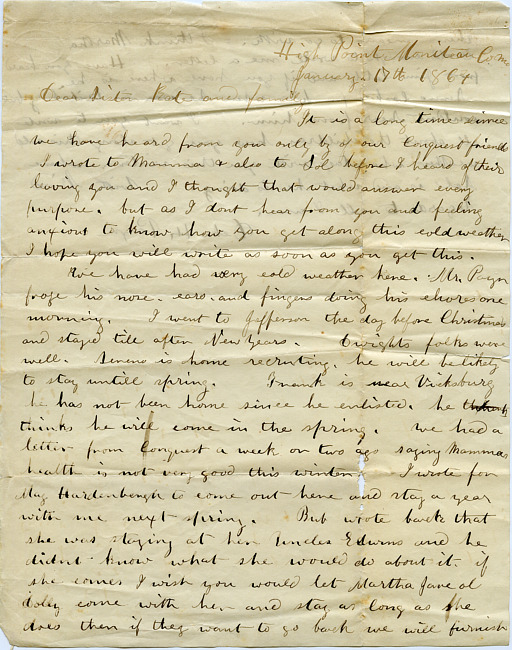 High Point Moniteau Co Mo
January 17th 1864
Dear Sister Kate and family
It is a long time since
we have heard from you only by our Conquest friends
I wrote to Mamma & also to Sol before I heard of their
leaving you and I thought that would answer every
purpose. but as I dont hear from you and feeling
anxious to know how you get along this cold weather
I hope you will write as soon as you get this.
We have had very cold weather here. Mr. Payn
froze his nose. ears. and fingers doing his chores one
morning. I went to Jefferson the day before Christmas
and staped till after New Years. Dwights folks were
well. is home recruting. he will be likely
to stay untill spring. Frank is near Vicksburg
he has not been home since he enlisted. he
thinks he will come in the spring. we had a
letter from Conquest a week or two ago saying Mammas
health is not very good this winter. I wrote for
Mag Hardenbergh to come out here and stay a year
with me next spring. But wrote back that
she was staying at her Uncles Edwins and he
didnt know what she would do about it. if
she comes I wish you would let Martha Jane
come with her and stay as long as she
does then if they want to go back we will furnish